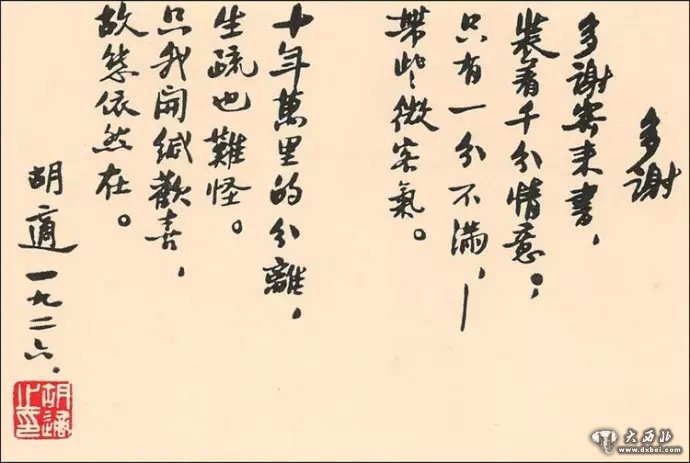 多謝
多謝寄來書，
裝着千分情意；
只有一分不滿，—
帶些微客氣。
十年萬里的分離，
生疏也難怪。
只我開緘歡喜，
故態依然在。
胡適 一九二六.
胡適之璽
大西北
www.dxbei.com